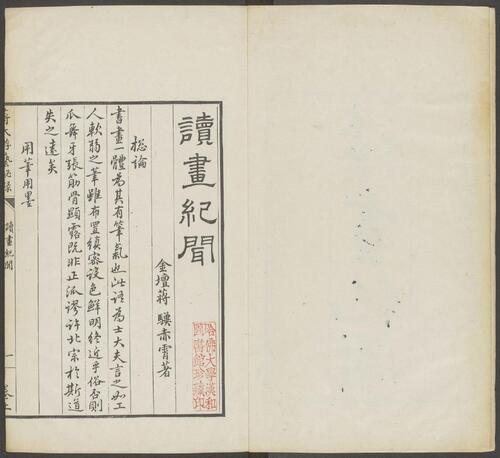 讀畫紀聞
金壇蔣 驥赤霄著
哈佛大學漢和
圖書館珍藏印
總論
書畫一體為其有筆氣也此語為士大夫言之如工
人軟弱之筆雖布置縝密設色鮮明終近乎俗否則
瓜舞牙張筋骨顯露既非正派謬許北宗於斯道
失之遠矣
用筆用墨
蔣氏游藝秘録
讀畫紀聞
一
卷上